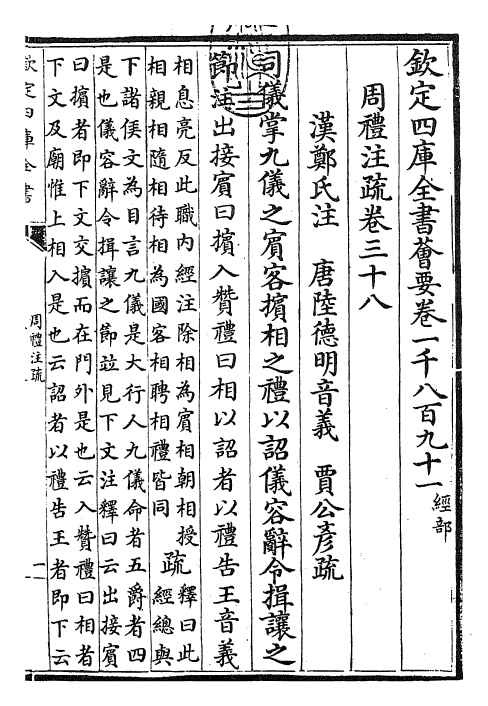 欽定四庫全書薈要卷一千八百九十一 經部
周禮注疏卷三十八
漢鄭氏注 唐陸德明音義 賈公彥疏
司儀掌九儀之賓客擯相之禮以詔儀容辭令揖讓之
節注出接賓曰擯入贊禮曰相以詔者以禮告王音義
相息亮反此職內經注除相為賓相朝相授
相親相隨相待相為國客相聘相禮皆同
疏
釋曰此
經總與
下諸侯文為目言九儀是大行人九儀命者五爵者四
是也儀容辭令揖讓之節竝見下文注釋曰云出接賓
曰擯者即下文交擯而在門外是也云入贊禮曰相者
下文及廟惟上相入是也云詔者以禮告王者即下云
欽定四庫全書
周禮注疏